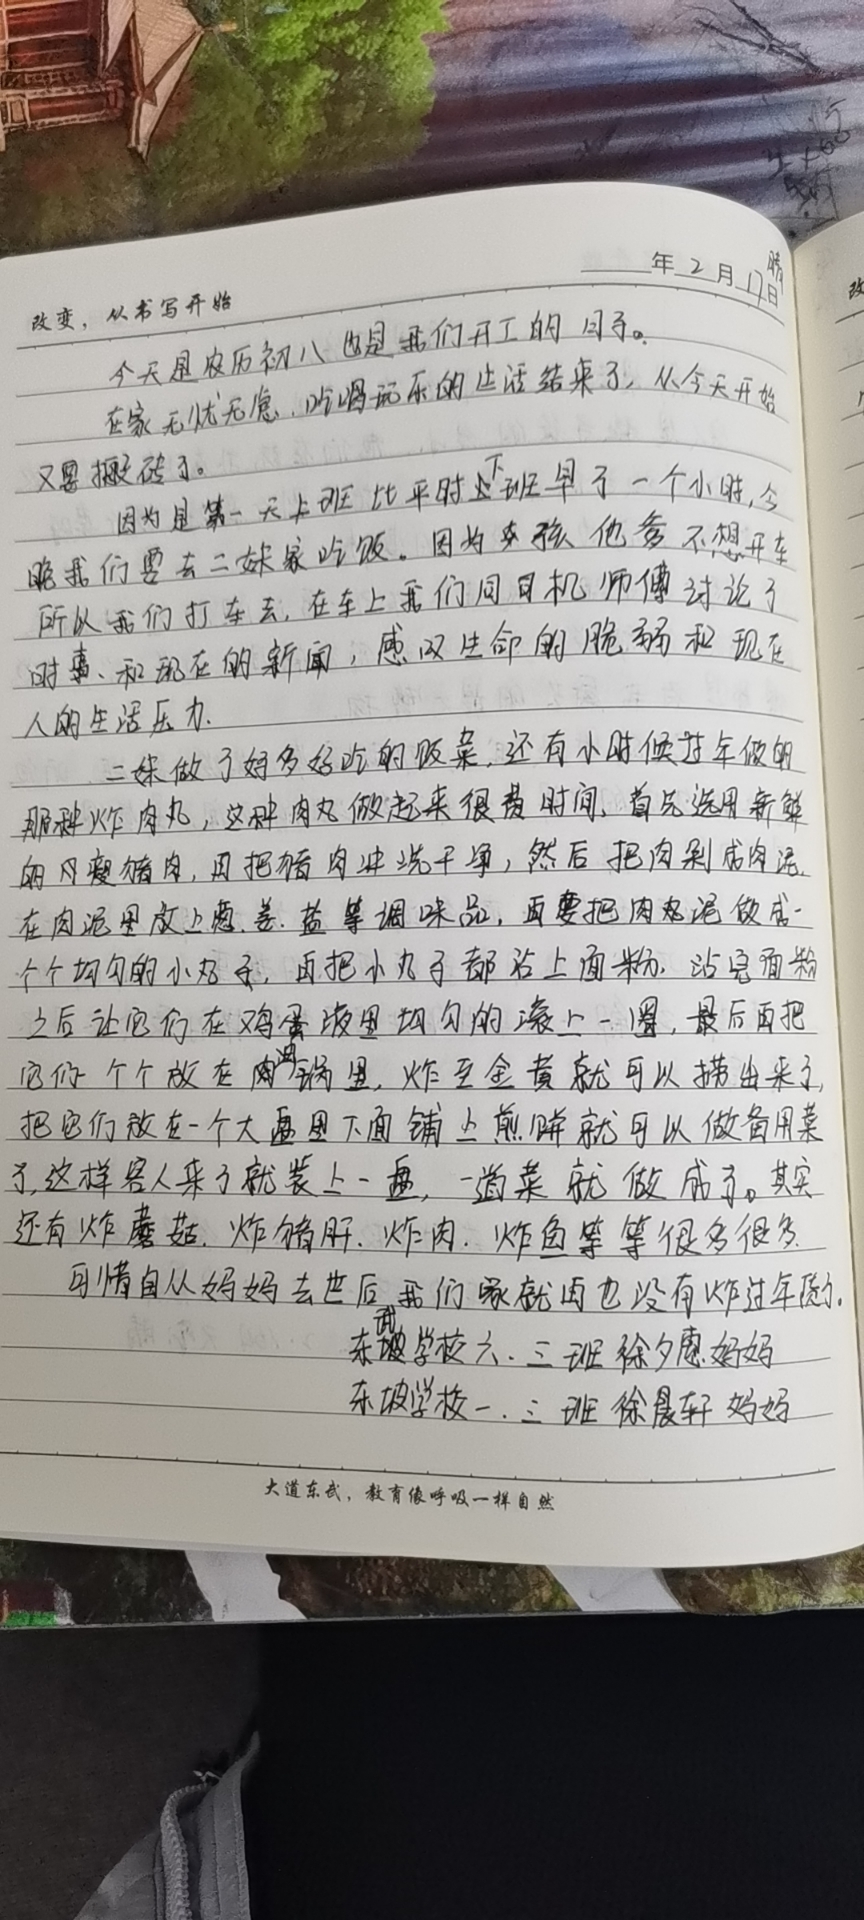 改变，从书写开始
年2月17日 晴
今天是农历初八也是我们开工的日子。
在家无忧无虑、吃喝玩乐的生活结束了，从今天开始
又要搬砖了。
因为是第一天上班比平时下班早了一个小时,今
晚我们要去二妹家吃饭。因为孩他爹不想开车
所以我们打车去,在车上我们同司机师傅讨论了
时事、和现在的新闻，感叹生命的脆弱和现在
人的生活压力.
二妹做了好多好吃的饭菜,还有小时候过年做的
那种炸肉丸，这种肉丸做起来很费时间、首先选用新鲜
的瘦猪肉,再把猪肉冲洗干净，然后把肉剁成肉泥.
在肉泥里放上葱.姜.盐等调味品，再要把肉泥做成一
个个均匀的小丸子，再把小丸子都沾上面粉.沾完面粉
之后让它们在鸡蛋液里均匀的滚上一圈，最后再把
它们一个个放在油锅里，炸至金黄就可以捞出来了,
把它们放在一个大盘里下面铺上煎饼就可以做备用菜
了,这样客人来了就装上一盘，一道菜就做成了。其实
还有炸蘑菇.炸猪肝.炸肉.炸鱼等等很多很多.
可惜自从妈妈去世后我们家就再也没有炸过年货了.
东武学校六.三班徐夕惠妈妈
东坡学校一.三班徐晨轩妈妈
大道东武，教育像呼吸一样自然